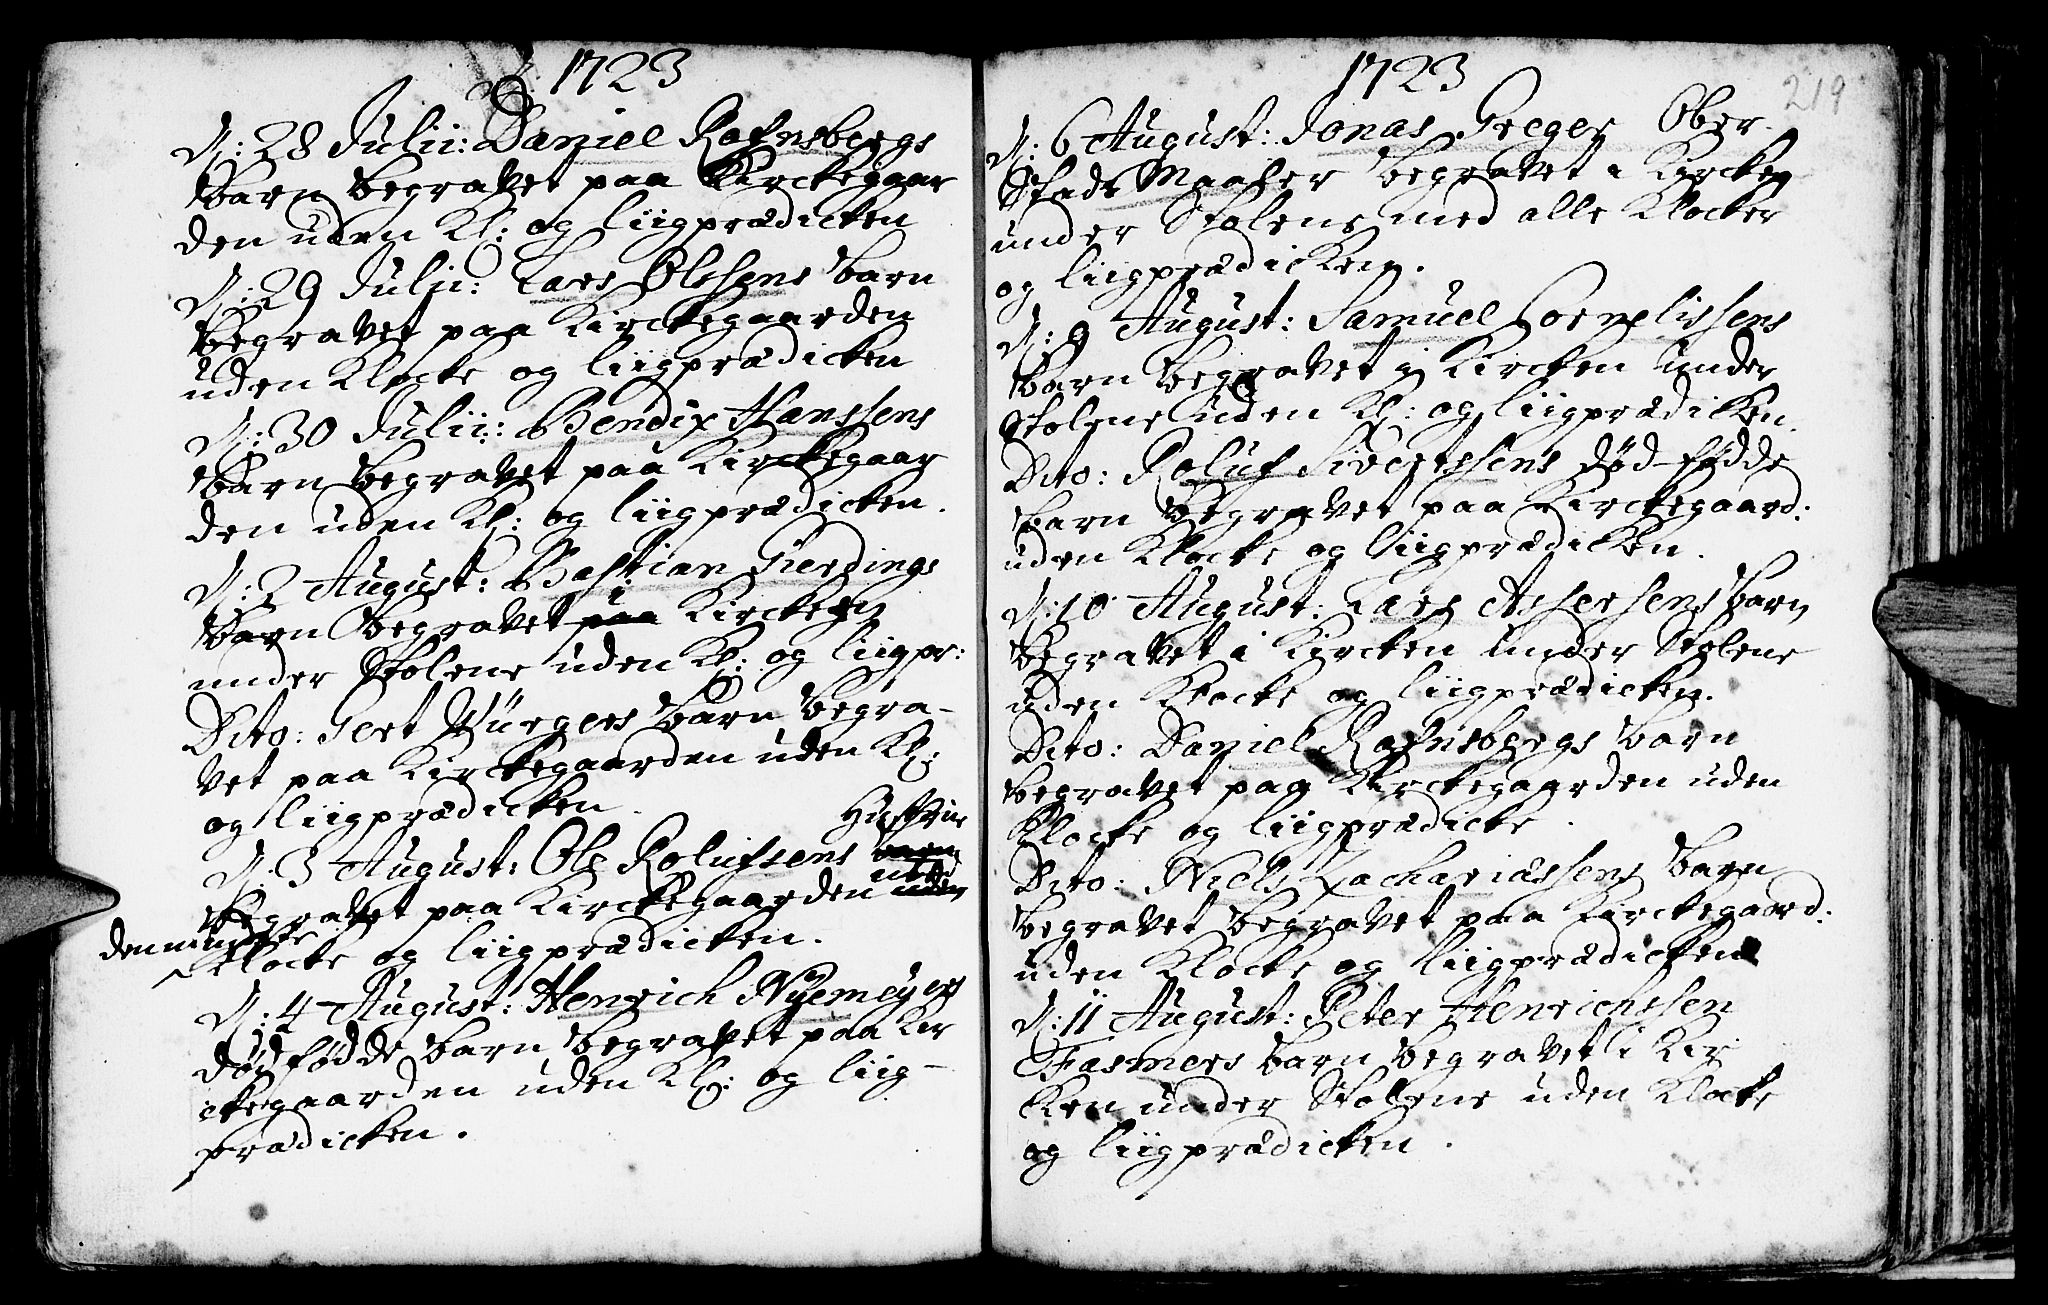 1723
D: 28 Julii: Daniel Rafnsbergs
Barn begravet paa Kirckegaar
den uden Kl: og liigprædicken
D: 29 Julii: Lars Olssens barn
begravet paa Kirckegaarden
uden Klocke og liigprædicken
D: 30 Julii: Bendix Hanssens
barn begravet paa Kirckegaar
den uden Kl: og liigprædicken.
D: 2 August: Bastian Gierdings
i
Barn begravet paa Kircken
under Stolene uden Kl: og liigpr:
Dito: Gert Würgers barn begra-
vet paa Kirckegaarden uden Kl:
og liigprædicken.
Hustrue
D: 3 August: Ole Rolufsens barn
med
begravet paa Kirckegaarden uden
den minste
Klocke og liigprædicken.
D: 4 August: Henrich Nyemeyers
dødfødde barn begravet paa Kir
ckegaarden uden Kl: og liig-
prædicken.
1723
219
D: 6 August: Jonas Greger Ober-
Stads Maaler begravet i Kircken
under Stolene med alle Klocker
og liigprædicken.
D: 9 August: Samuel Cornelissens
barn begravet i Kircken under
Stolene uden Kl: og liigprædicken.
Dito: Roluf Sivertssens død-fødde
barn begravet paa Kirckegaard:
uden Klocke og liigprædicken.
D: 10 August: Lars Assersens barn
begravet i Kircken under Stolene
uden Klocke og liigprædicken.
Dito: Daniel Rafnsbergs barn
begravet paa Kirckegaarden uden
Klocke og liigprædicke.
Dito: Niels Zachariassens barn
begravet begravet paa Kirckegaard:
uden Klocke og liigprædicken
D: 11 August: Peter Henrichssen
Fasmers barn begravet i Kir
cken under Stolene uden Klocke
og liigprædicken.